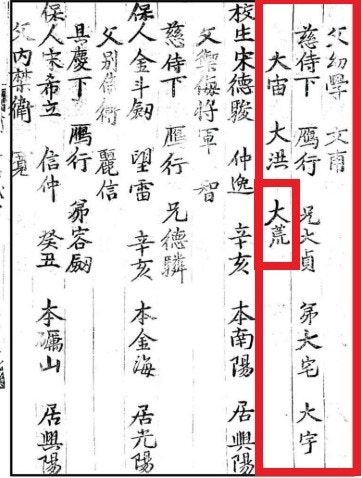 父幼學 文甫
慈侍下 鴈行 兄大貞 弟大宅 大宇
大宙 大洪 大荒
校生宋德駿 仲逸 辛亥 本南陽 居興陽
父禦侮將軍 智
慈侍下 鴈行 兄德驎
保人金斗剱 望雷 辛亥 本金海 居光陽
父別侍衛 麗信
具慶下 鴈行 弟容剱
保人宋希立 信仲 癸丑 本礪山 居興陽
父內禁衛 寬